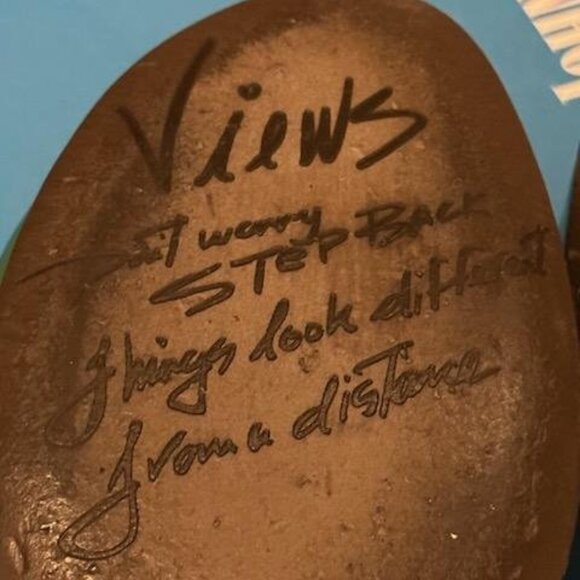 Views
Don't worry
STEP BACK
things look different
from a distance